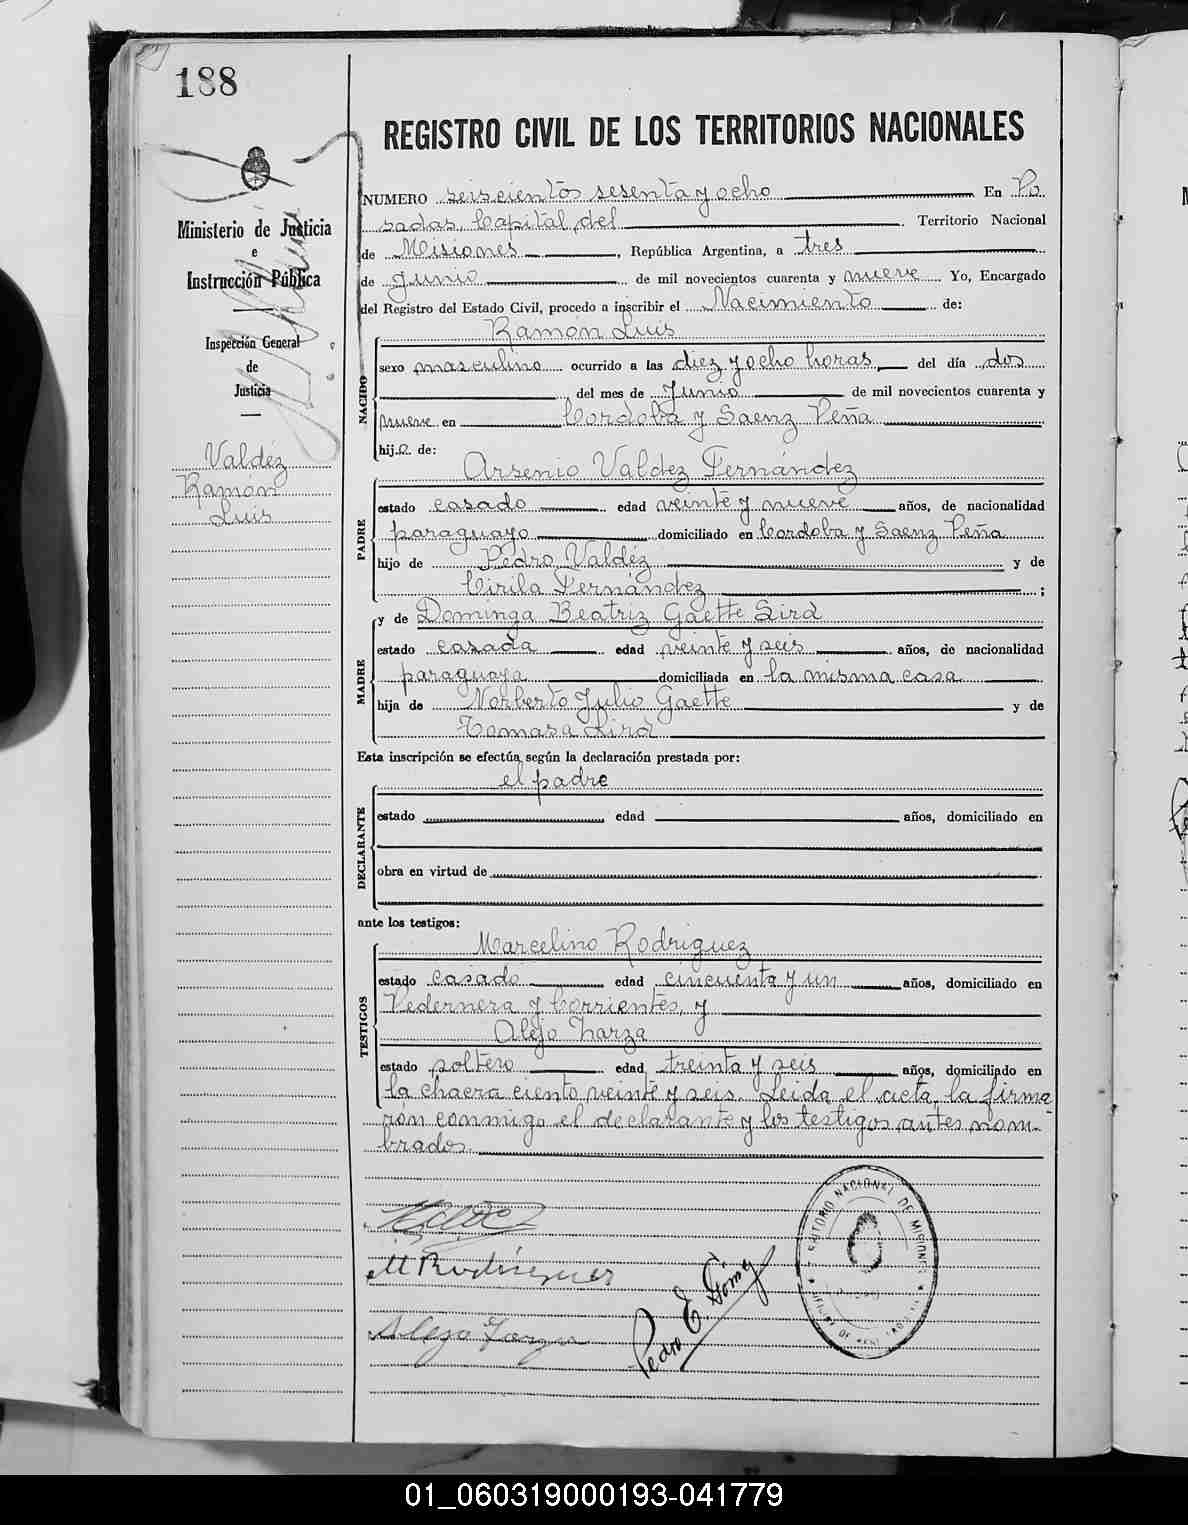 188
REGISTRO CIVIL DE LOS TERRITORIOS NACIONALES
Ministerio de Justicia
e
Instrucción Pública
Inspección General
de
Justicia
Valdéz
Ramón
Luis
NUMERO seiscientos sesenta y ocho En Po
sadas, Capital, del Territorio Nacional
de Misiones, República Argentina, a tres
de Junio de mil novecientos cuarenta y nueve Yo, Encargado
del Registro del Estado Civil, procedo a inscribir el Nacimiento de:
NACIDO
Ramón Luis
sexo masculino ocurrido a las diez y ocho horas, del día dos
del mes de Junio de mil novecientos cuarenta y
nueve en Cordoba y Saenz Peña
hijo de:
PADRE
Arsenio Valdez Fernández
estado casado edad veinte y nueve años, de nacionalidad
paraguayo domiciliado en Cordoba y Saenz Peña
hijo de Pedro Valdéz y de
Cirila Fernández ;
MADRE
y de Dominga Beatriz Gaette Sird
estado casada edad veinte y seis años, de nacionalidad
paraguaya domiciliada en la misma casa
hija de Norberto Julio Gaette y de
Tomasa
Esta inscripción se efectúa según la declaración prestada por:
el padre
DECLARANTE
estado edad años, domiciliado en
obra en virtud de
ante los testigos:
TESTIGOS
Marcelino Rodriguez
estado casado edad cincuenta y un años, domiciliado en
Pedernera y Corrientes, y
Alejo Zarza
estado soltero edad treinta y seis años, domiciliado en
la chacra ciento veinte y seis. Leida el acta, la firma
rón conmigo el declarante y los testigos antes nom-
brados.
M Rodriguez
Pedro E. Gómez
TERRITORIO NACIONAL DE MISIONES
01_060319000193-041779